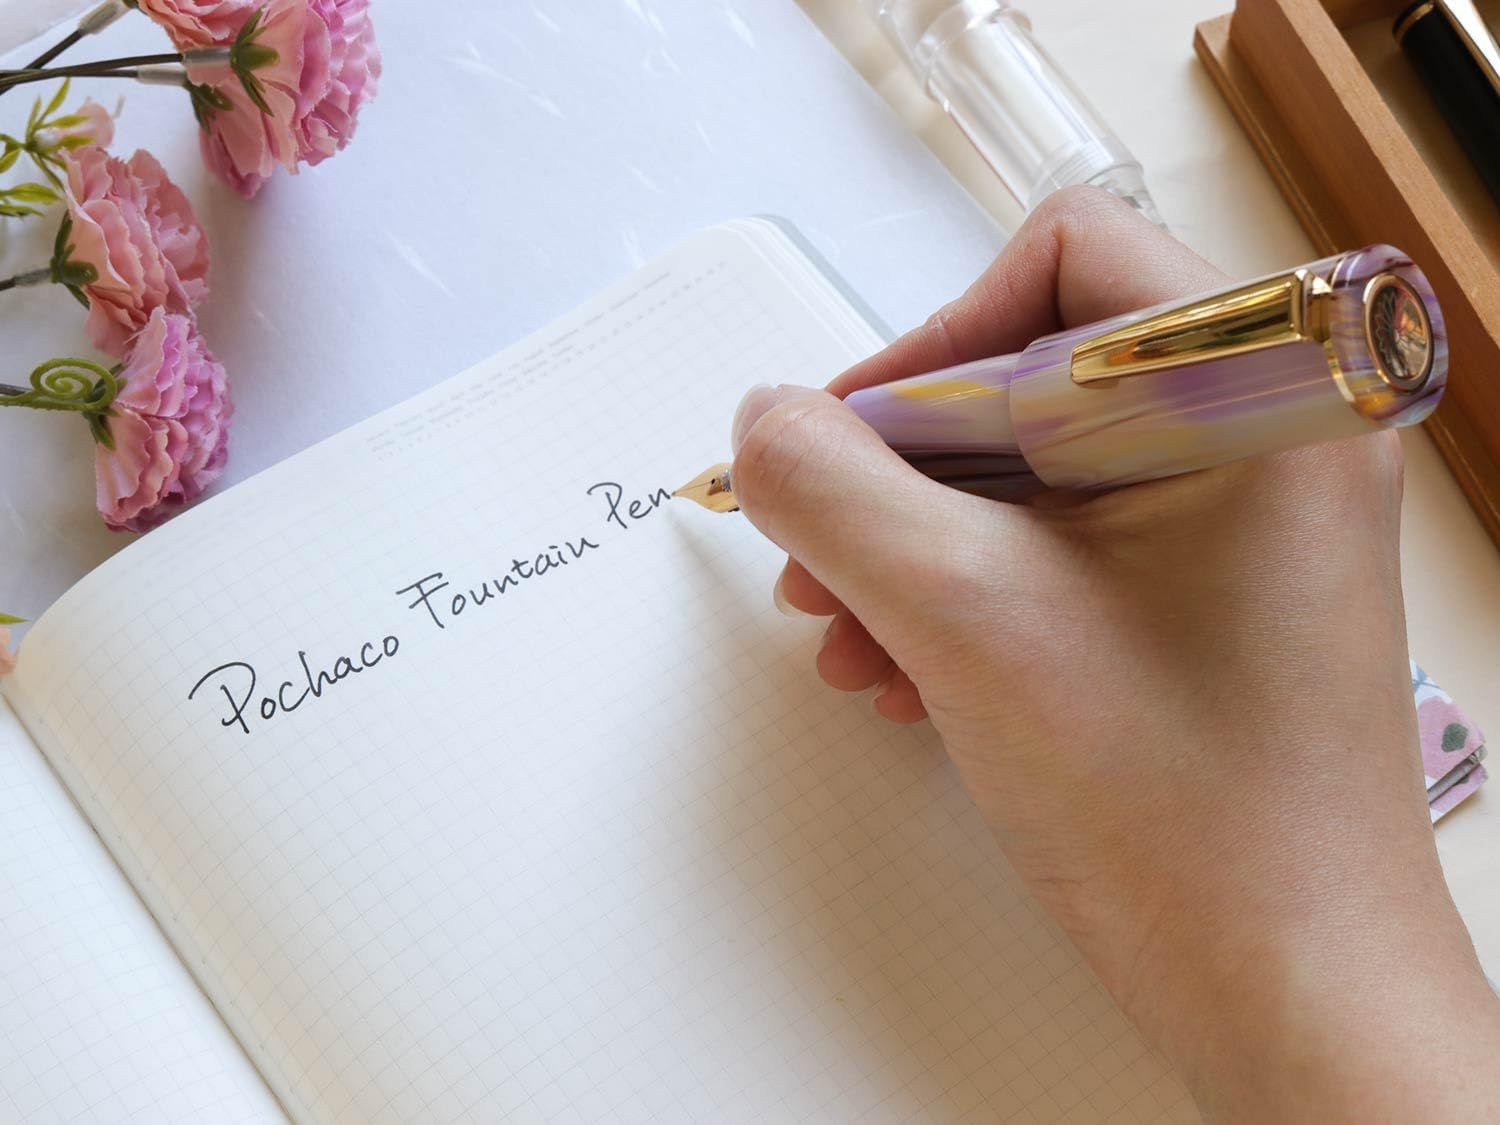 Pochaco Fountain Pen